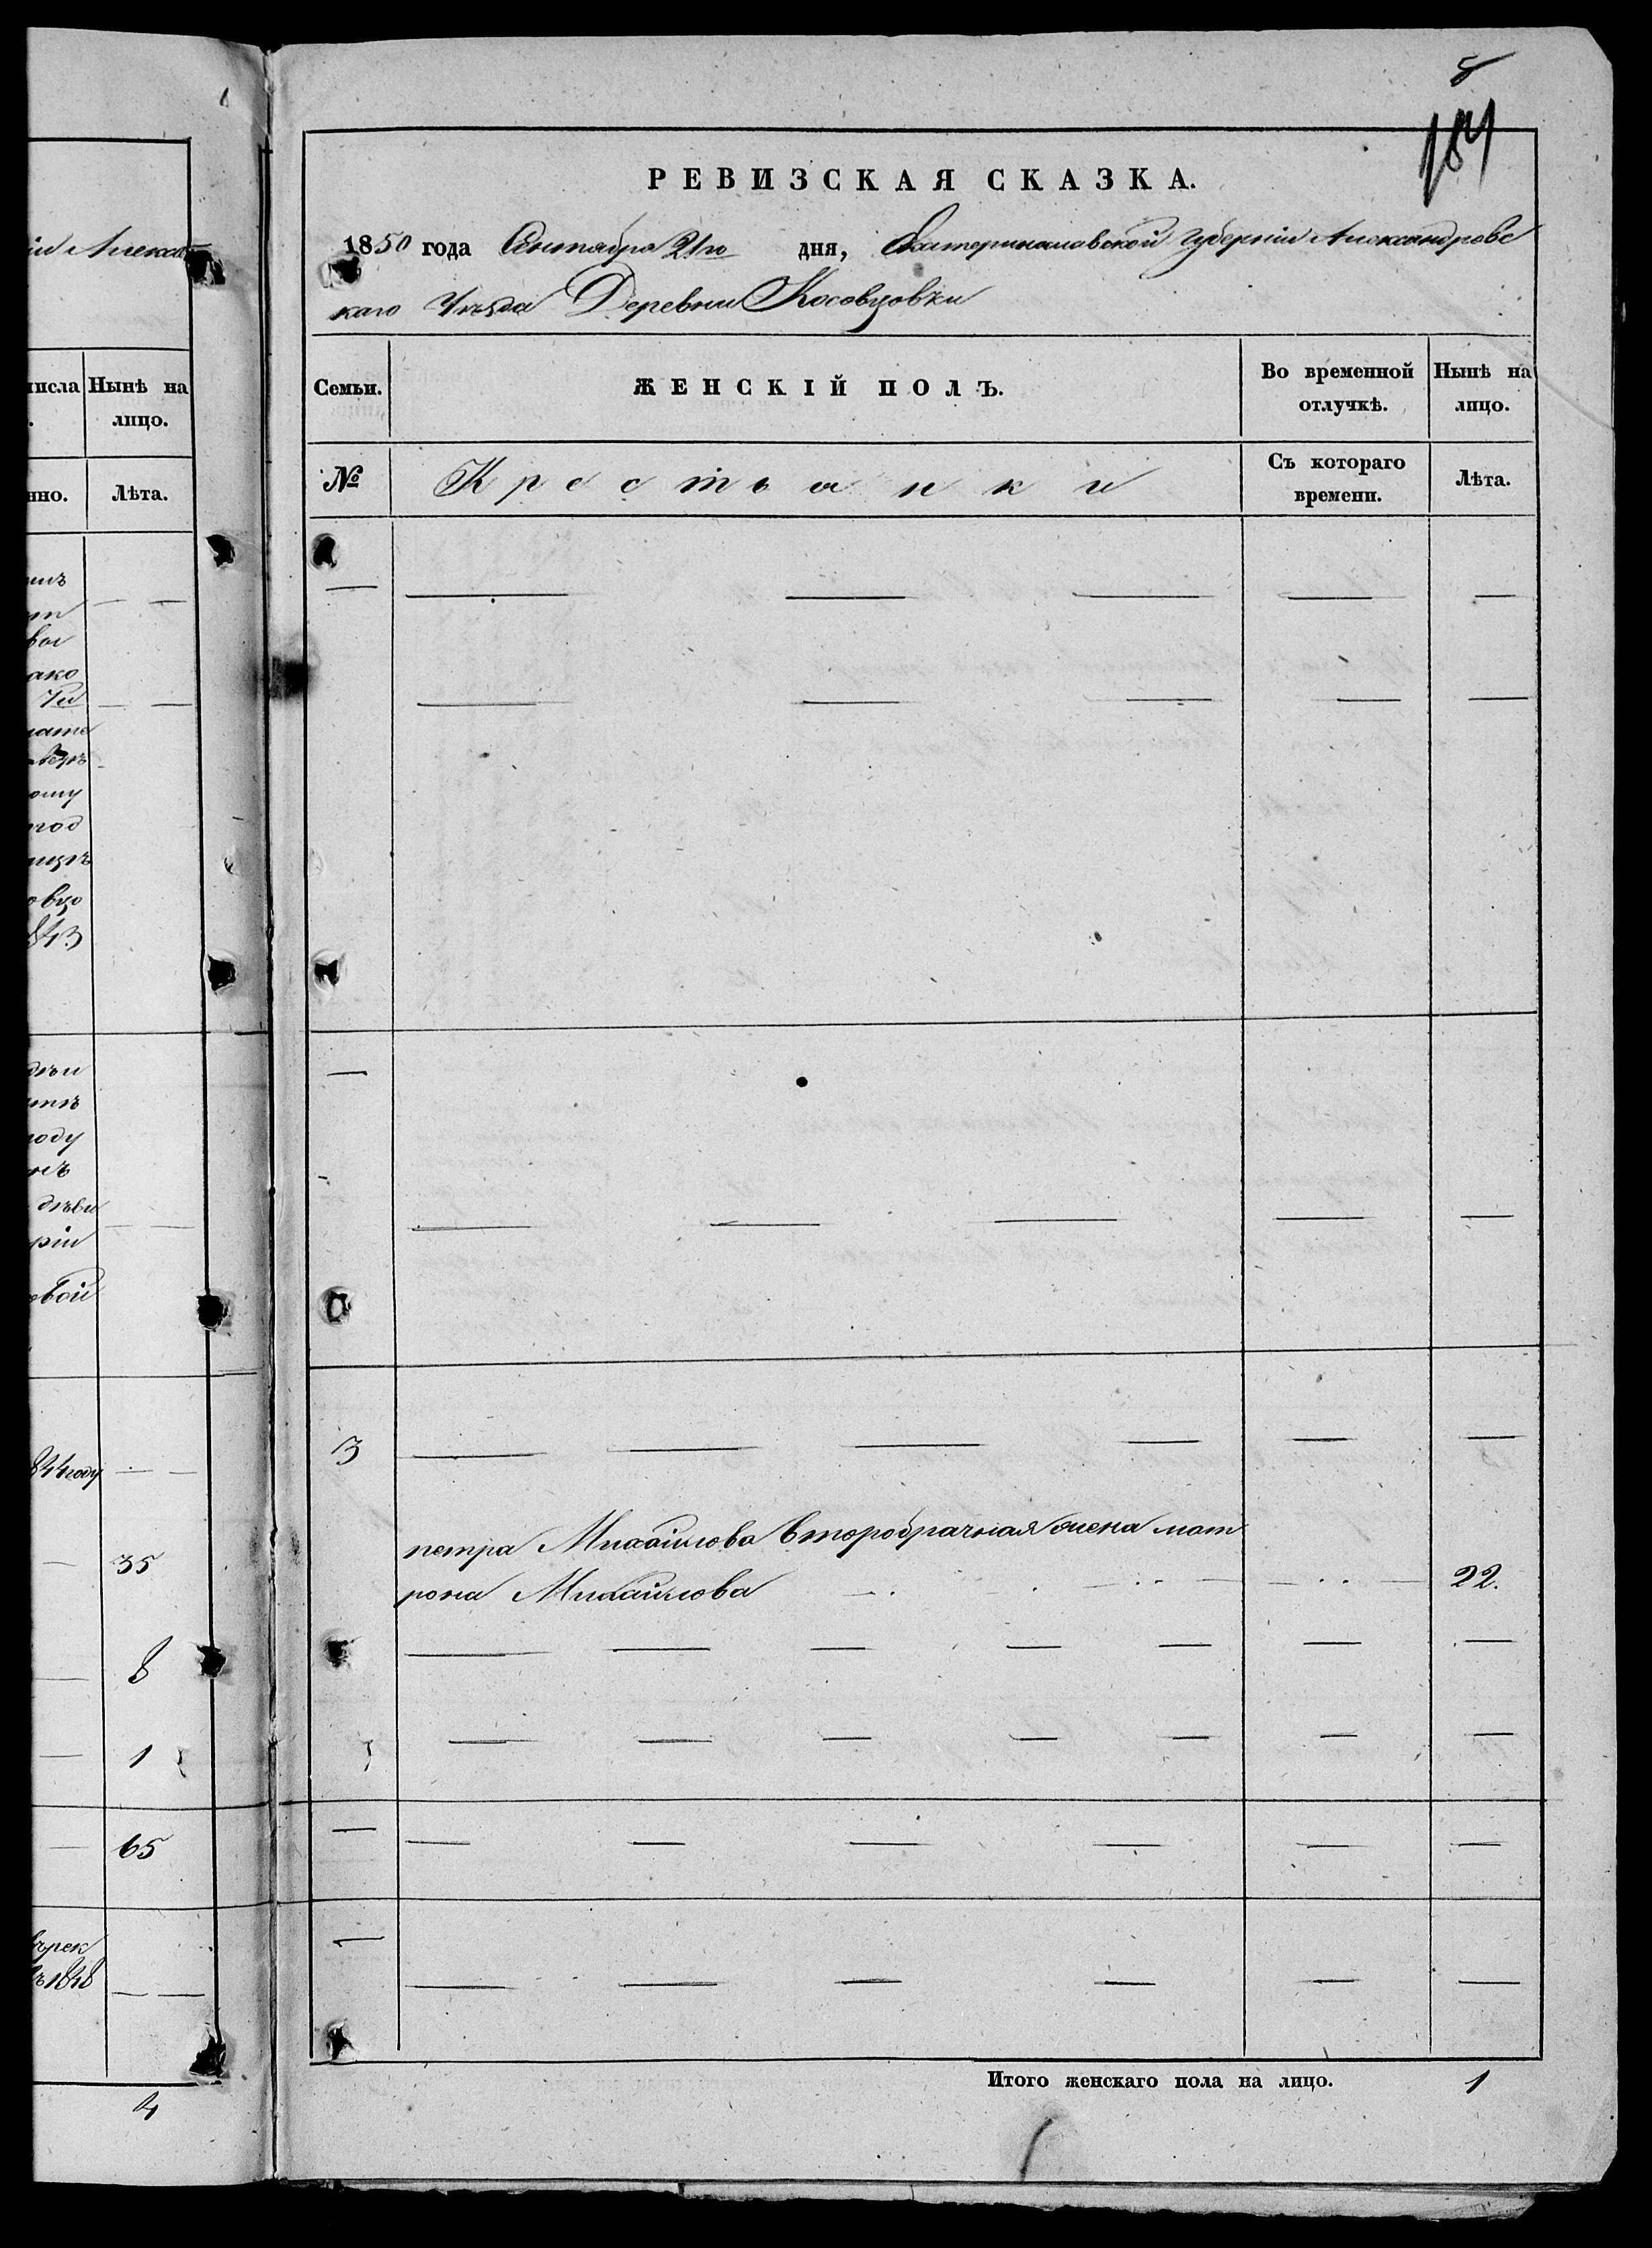 5
184
РЕВИЗСКАЯ СКАЗКА.
1850 года Сентября 21го дня, Екатеринославской Губерніи Александровс
каго Уѣзда Деревни Косовцовки
Семьи. ЖЕНСКІЙ ПОЛЪ. Во временной отлучкѣ. Нынѣ на лицо.
№ Крестьянки Съ котораго времени. Лѣта.
3
петра Михайлова второбрачная жена мат
рона Михайлова 22.
Итого женскаго пола на лицо. 1
исла Нынѣ на
лицо.
нно. Лѣта.
вы
ако
ому
год
овцо
843
оду
ріи
овой
844 году
35
8
1
65
рек
1848
4